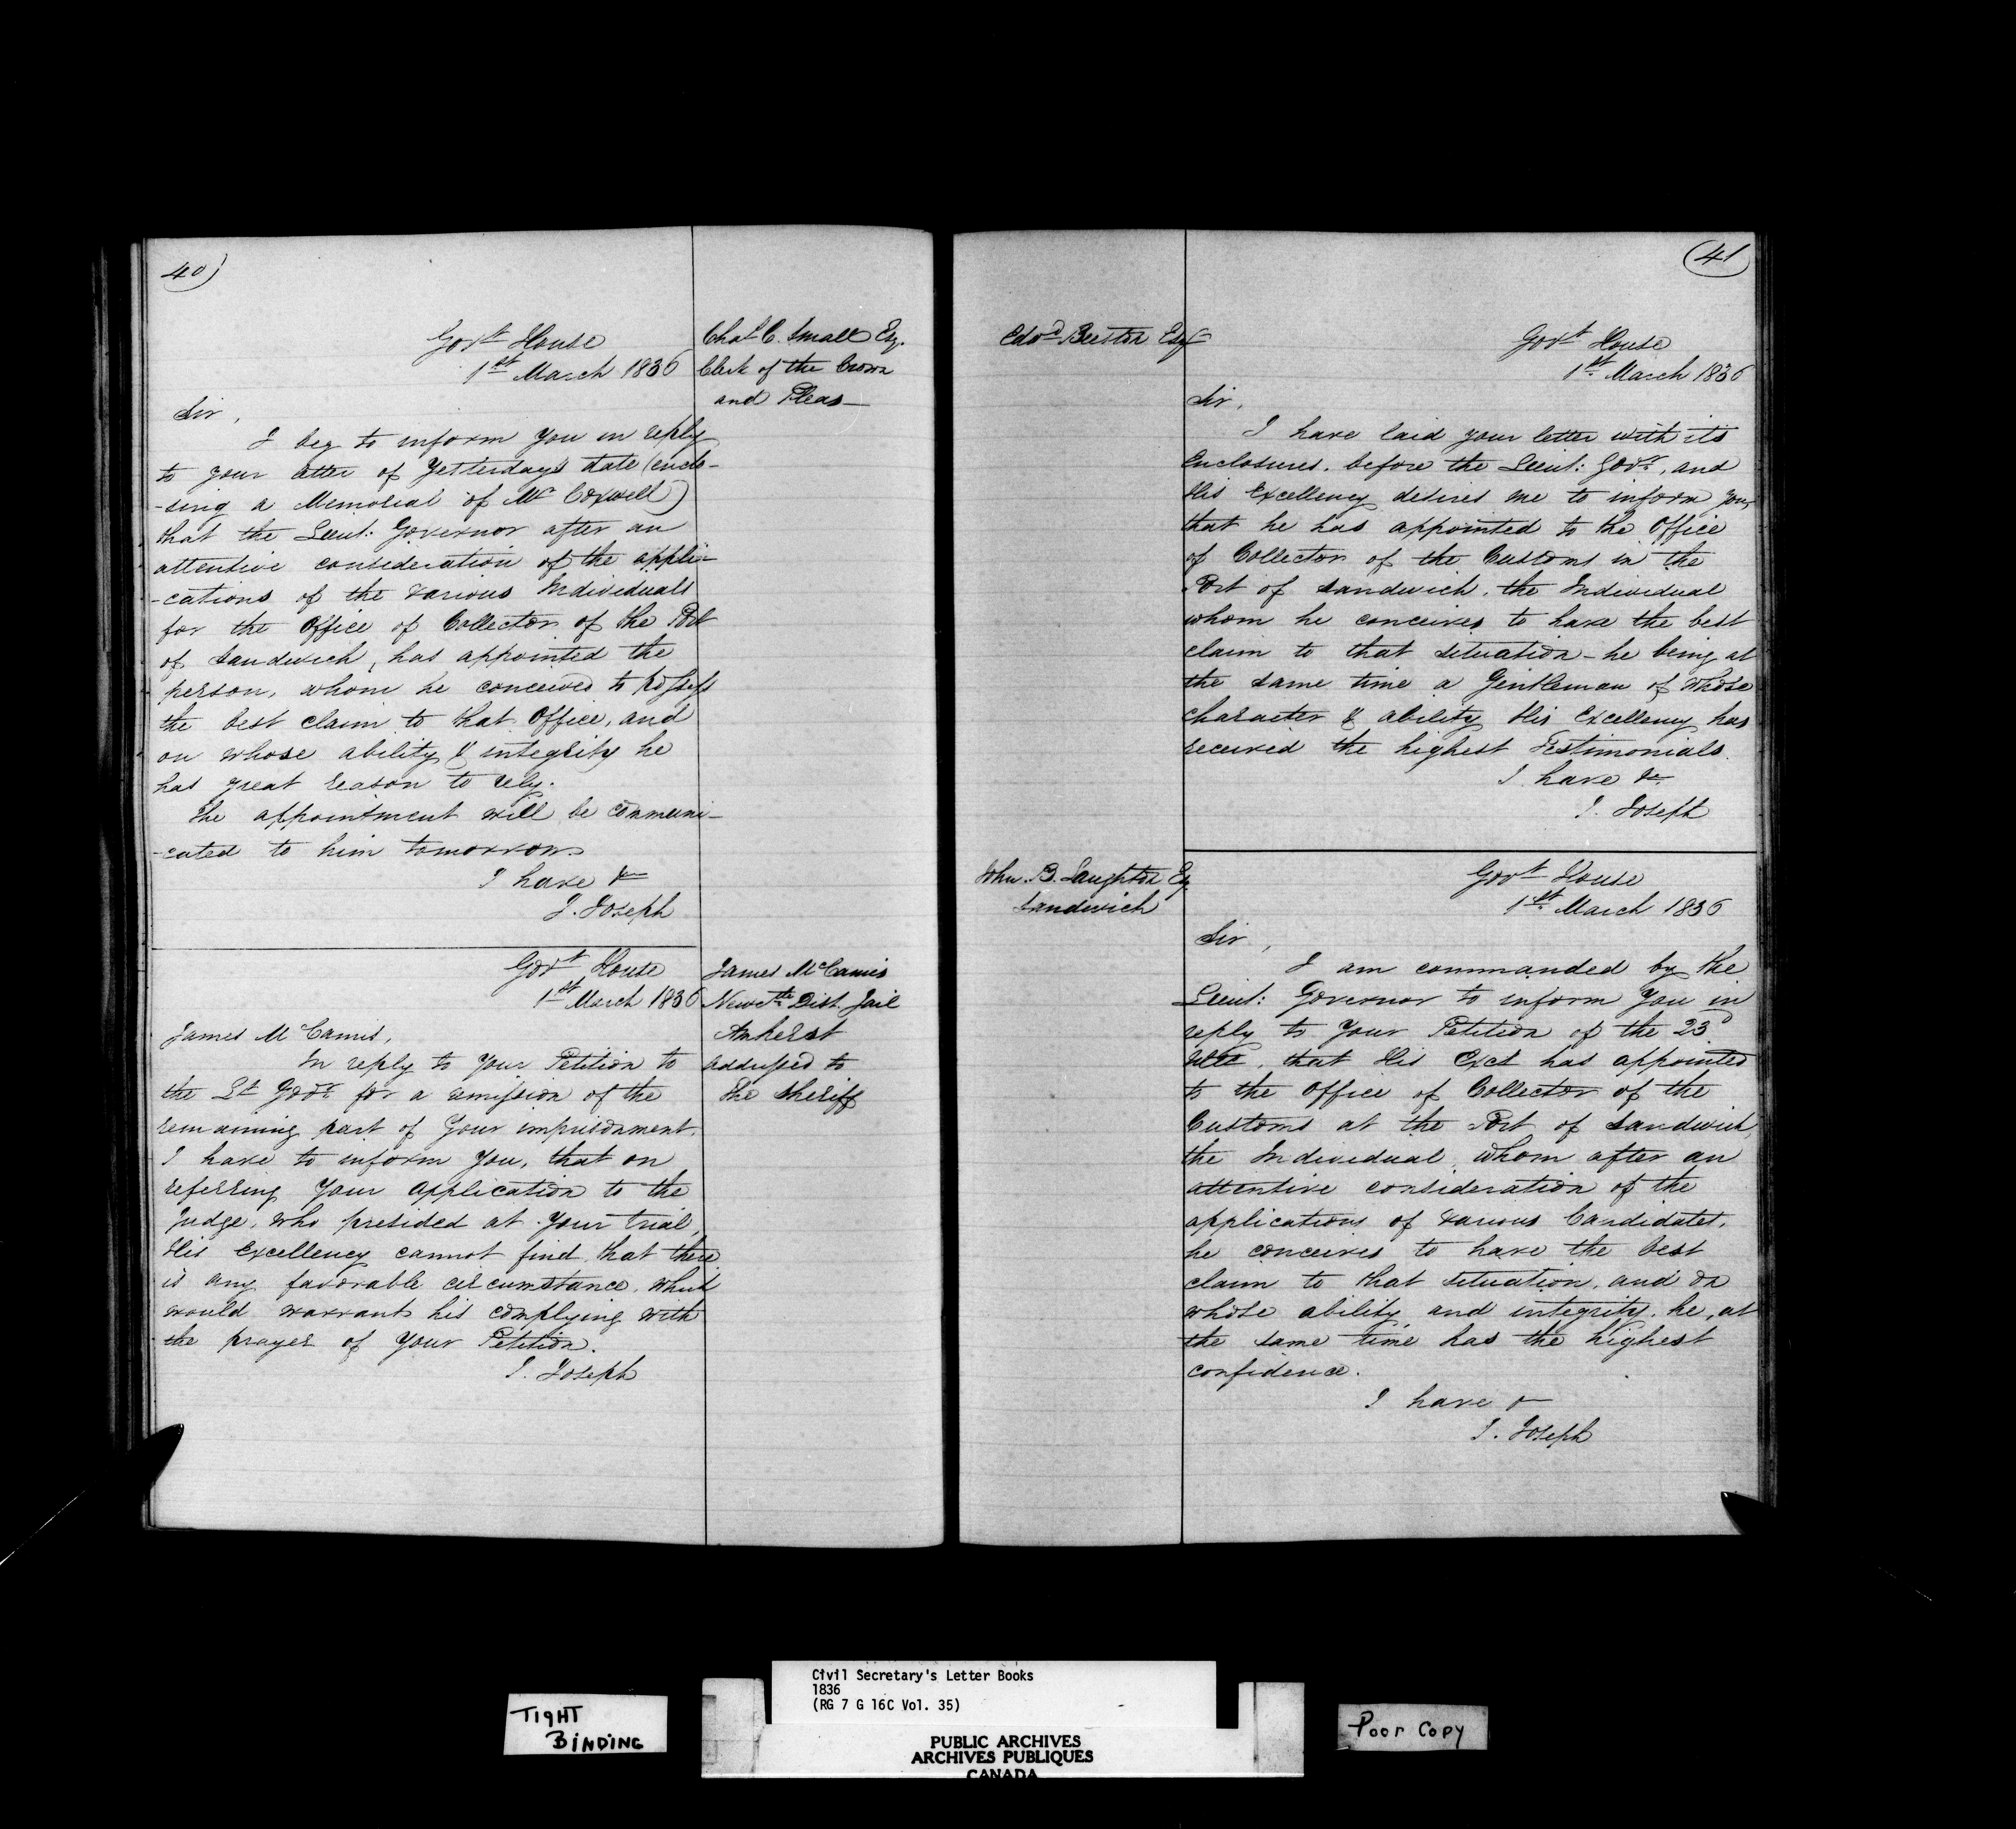 40)
Govt House
1st March 1836
Chas C. Small Esq.
Clerk of the Crown
and Pleas
Sir,
I beg to inform you in reply
to your letter of Yesterday's date (enclo-
-sing a Memorial of Mr Coxwell)
that the Lieut: Governor after an
attentive consideration of the appli-
-cations of the various Individuals
for the Office of Collector of the Port
of Sandwich, has appointed the
person, whom he conceives to possess
the best claim to that Office, and
on whose ability & integrity he
has great reason to rely.
The appointment will be communi-
-cated to him tomorrow.
I have &c
J. Joseph
Govt House
1st March 1836
James McCamis
Newctle Dist. Jail
Amherst
addressed to
the Sheriff
James McCamis,
In reply to Your Petition to
the Lt Govr for a remission of the
remaining part of Your imprisonment.
I have to inform You, that on
referring Your application to the
Judge, who presided at Your trial,
His Excellency cannot find, that there
is any favorable circumstance, which
would warrant his complying with
the prayer of Your Petition.
J. Joseph
(41
Edwd Beeston Esqr
Govt House
1st March 1836
Sir,
I have laid your letter with its
Enclosures, before the Lieut: Govr, and
His Excellency desires me to inform you,
that he has appointed to the Office
of Collector of the Customs in the
Port of Sandwich, the Individual
whom he conceives to have the best
claim to that situation - he being at
the same time a Gentleman of whose
character & ability His Excellency has
received the highest Testimonials.
I have &c
J. Joseph
John. B. Laughton Esq
Sandwich
Govt House
1st March 1836
Sir,
I am commanded by the
Lieut: Governor to inform You in
reply to Your Petition of the 23d
Ulto, that His Exct has appointed
to the Office of Collector of the
Customs at the Port of Sandwich,
the Individual, whom after an
attentive consideration of the
applications of various Candidates,
he conceives to have the best
claim to that situation, and on
whose ability and integrity, he, at
the same time has the highest
confidence.
I have &c
J. Joseph
TIGHT
BINDING
Civil Secretary's Letter Books
1836
(RG 7 G 16C Vol. 35)
PUBLIC ARCHIVES
ARCHIVES PUBLIQUES
CANADA
Poor Copy